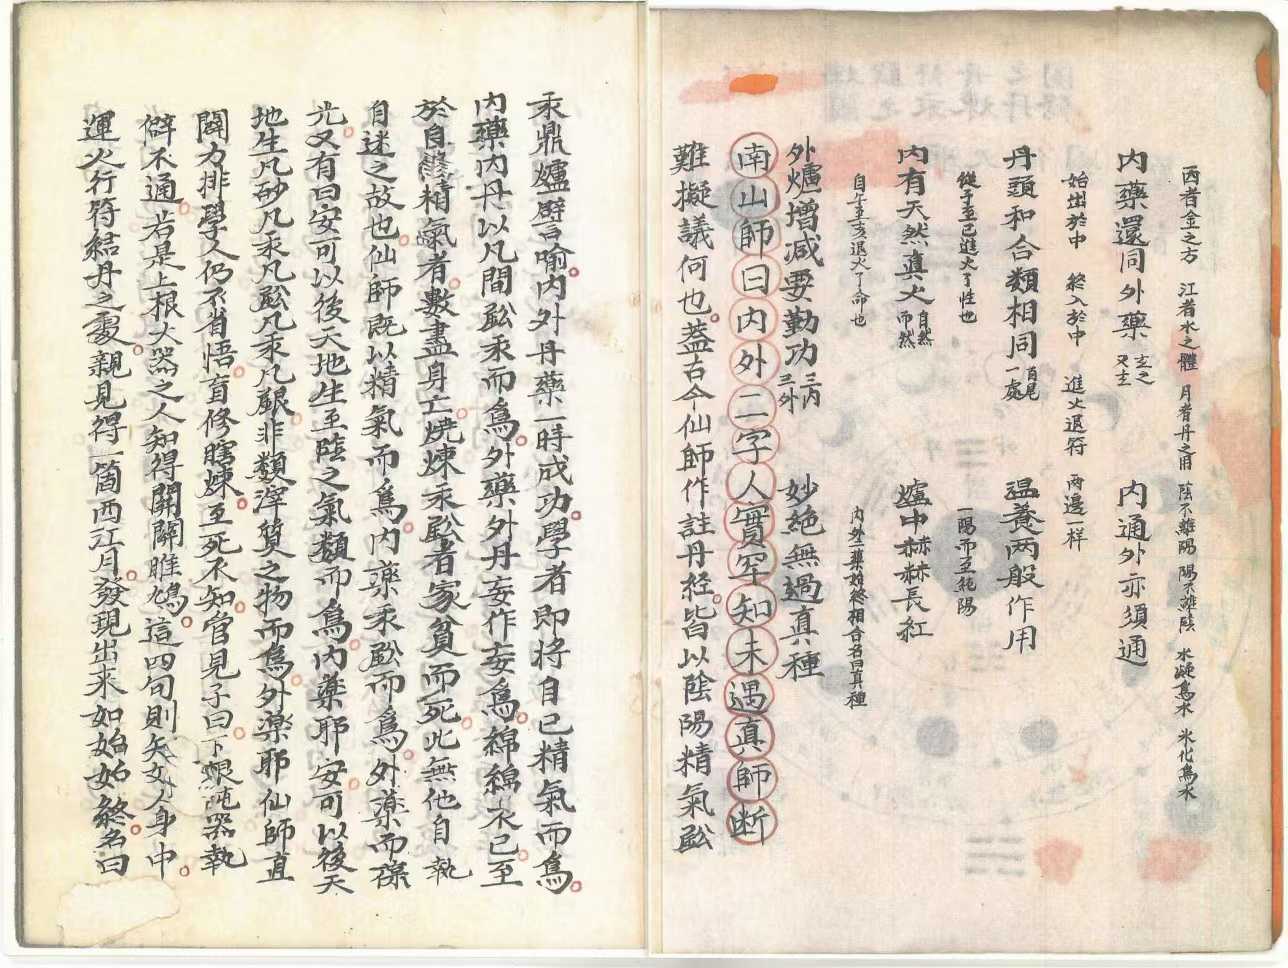 西者金之方 江者水之體 月者丹之用 陰不離陽 陽不離陰 水凝為氷 氷化為水
内藥還同外藥 玄之又玄 内通外亦須通
始出於中 終入於中 進火退符 兩邊一样
丹頭和合類相同 首尾一處 温養两般作用
從子至巳進火了性也 一陽而至純陽
内有天然真火 自然而然 爐中赫赫長紅
自午至亥退火了命也 内外二藥始終相合名曰真種
外爐増减要勤功 三内三外 妙絶無過真種
南山師曰内外二字人實罕知未遇真師断
難擬議何也蓋古今仙師作註丹經皆以陰陽精氣鈆
汞鼎爐譬喻内外丹藥一時成功學者即將自已精氣而爲
内藥内丹以凡間鈆汞而爲外藥外丹妄作妄爲綿綿不已至
於自修精氣者數盡身亡燒煉汞鈆者家貧而死此無他自執
自迷之故也仙師既以精氣而爲内藥汞鈆而爲外藥而祼
光又有曰安可以後天地生至陰之氣類而爲内藥耶安可以後天
地生凡砂凡汞凡鈆凡汞凡銀非類滓質之物而爲外藥耶仙師直
闢力排學人仍不省悟盲修瞎煉至死不知管見子曰下根鈍器執
僻不通若是上根大器之人知得開關雎鳩這四句則知女人身中
運火行符結丹之處親見得一箇西江月發現出来如始如終名曰